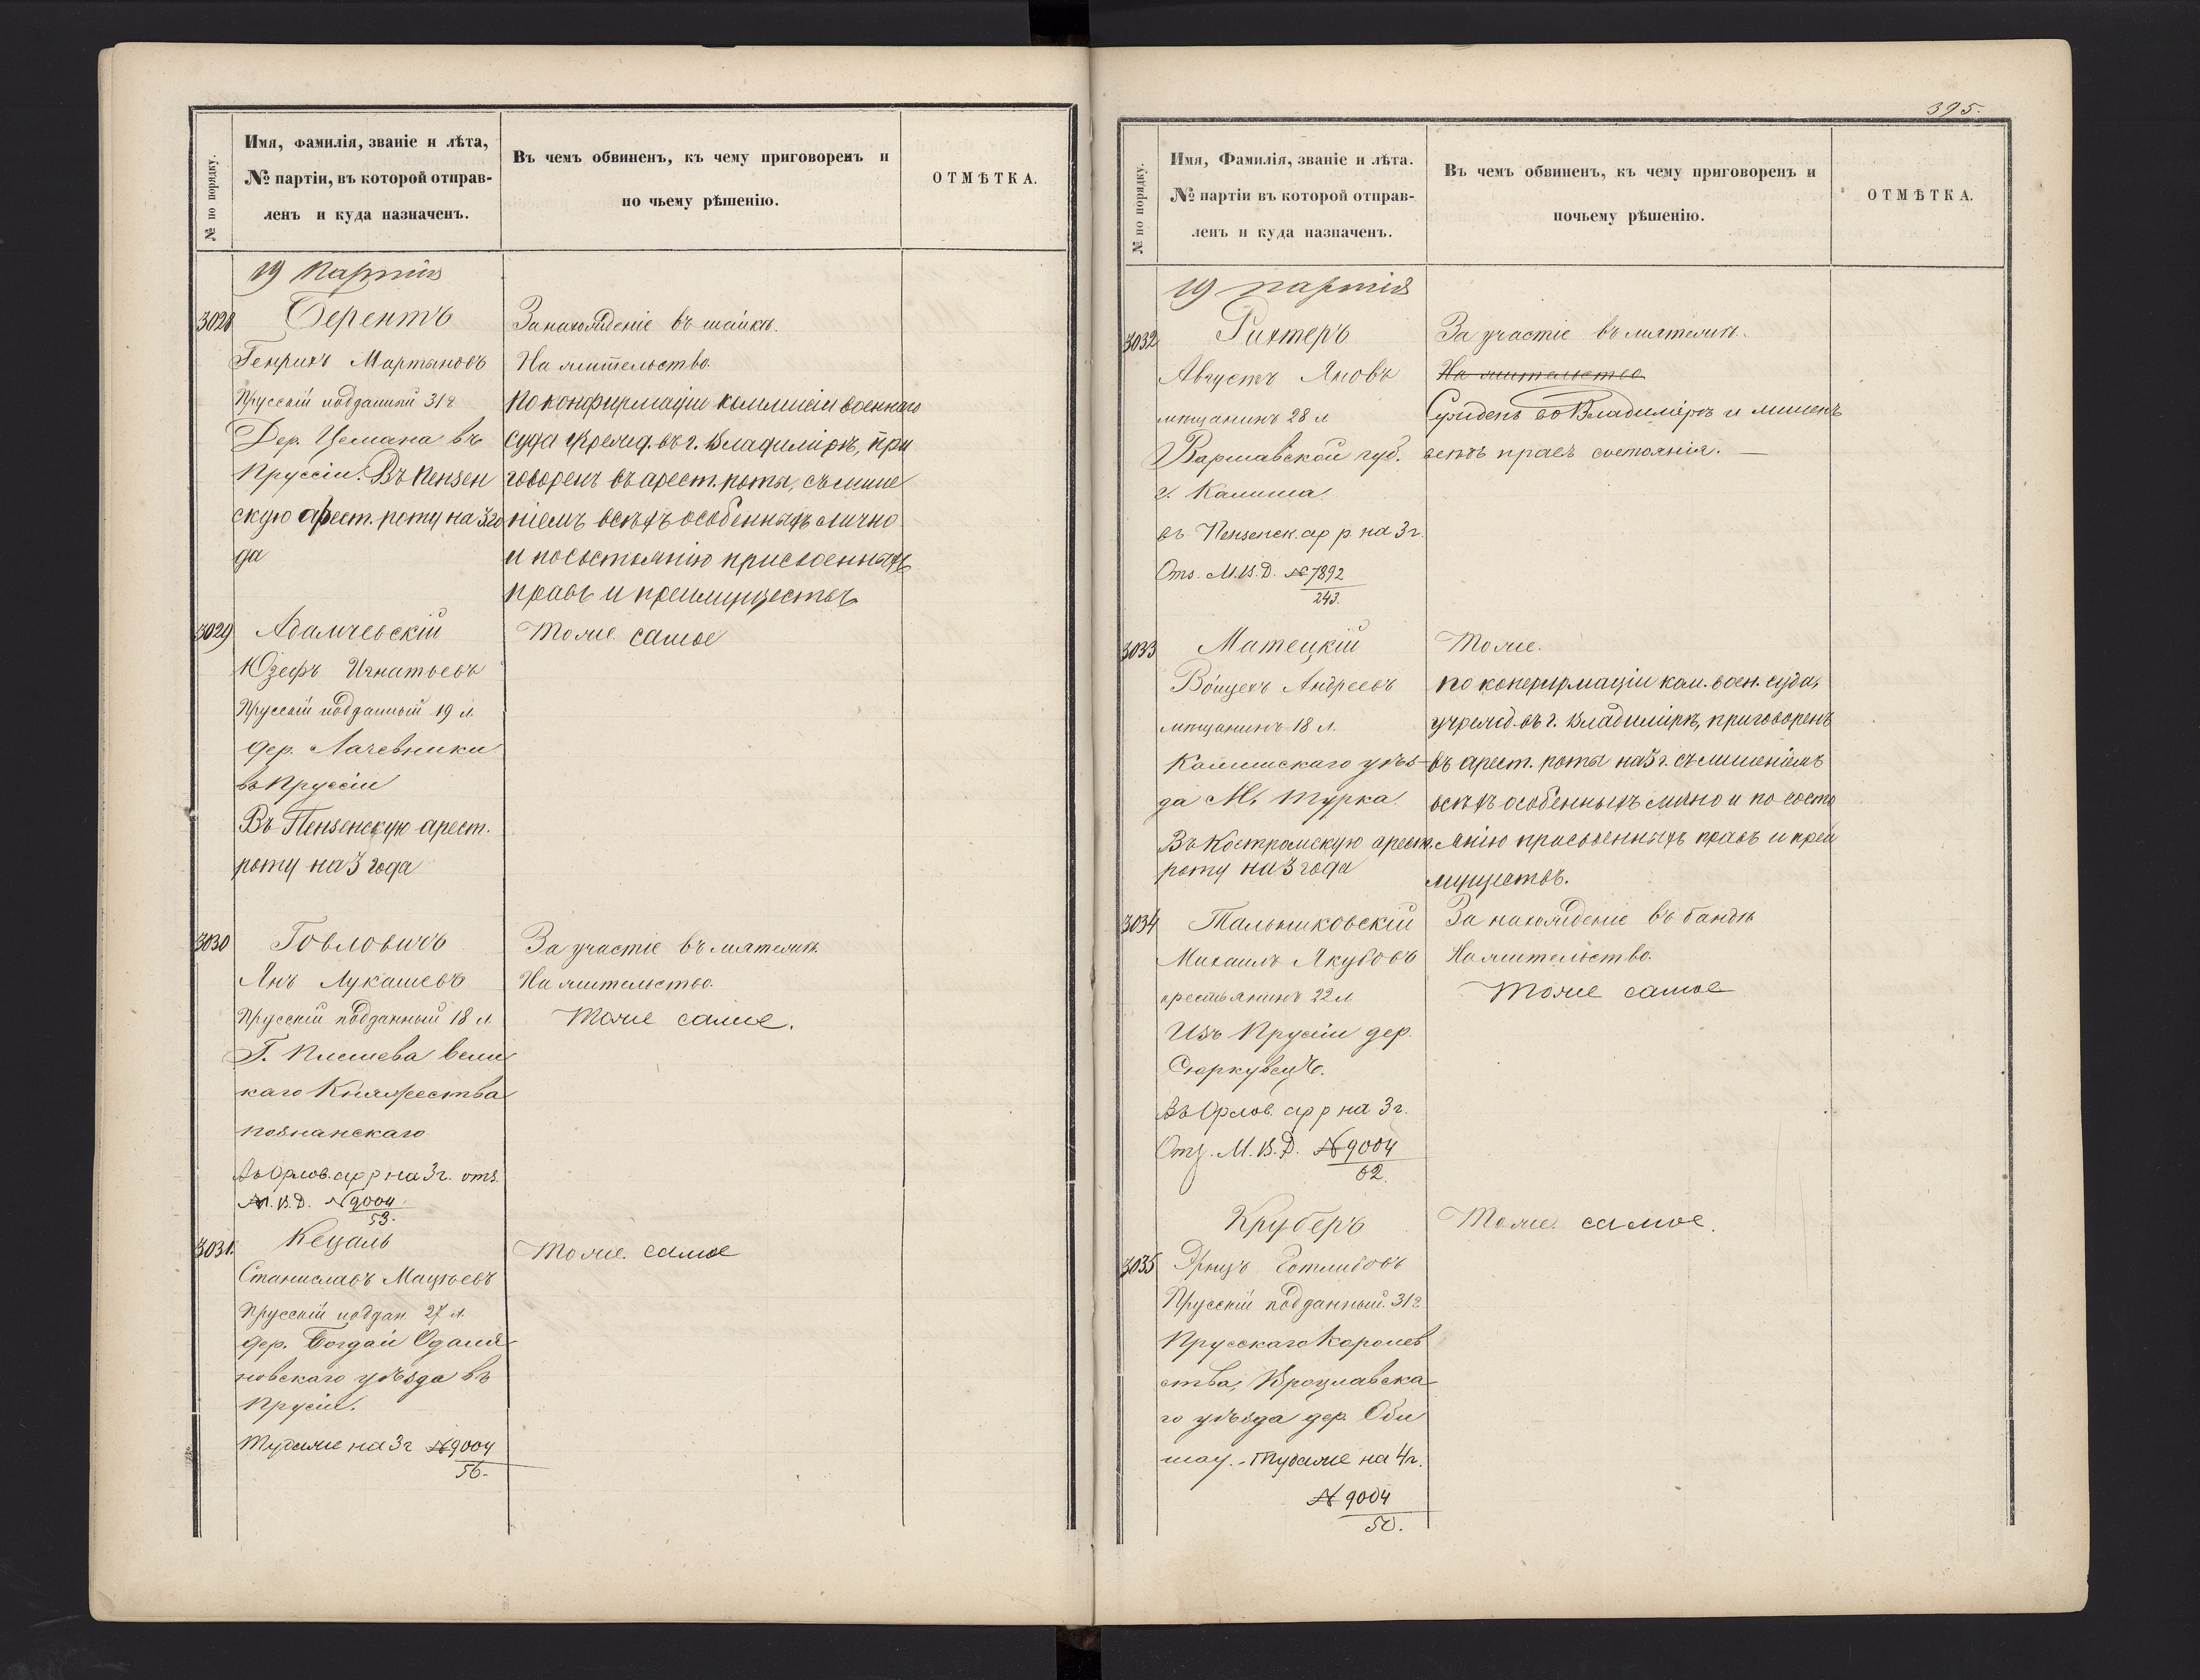 № по порядку.
Имя, фамилія, званіе и лѣта,
№ партіи, въ которой отправ-
ленъ и куда назначенъ.
Въ чемъ обвиненъ, къ чему приговоренъ и
по чьему рѣшенію.
ОТМѢТКА.
19 Партія
3028
Берентъ
Генрихъ Мартыновъ
Прусскій подданный 31 г
Дер. Цемана въ
Пруссіи. Въ Пензен
скую арест. роту на 3 го
да
За нахожденіе въ шайкѣ.
На жительство.
По конфирмаціи коммисіи военнаго
суда учрежд. въ г. Владимірѣ, при
говоренъ въ арест. роты, съ лише
ніемъ всѣхъ особенныхъ лично
и по состоянію присвоенныхъ
правъ и преимуществъ
3029
Адамчевскій
Юзефъ Игнатьевъ
Прусскій подданный 19 л.
дер. Лачевники
въ Пруссіи
Въ Пензенскую арест.
роту на 3 года
Тоже самое
3030
Говловичъ
Янъ Лукашевъ
Прусскій подданный 18 л.
Г. Плешева вели
каго Княжества
познанскаго
Въ Орлов. ар р на 3 г. отз.
М. В. Д. № 9004
53.
За участіе въ мятежѣ.
На жительство.
Тоже самое.
3031.
Кецаль
Станиславъ Мацѣевъ
Прусскій поддан 27 л.
дер. Богдай Одаля
новскаго уѣзда въ
Прусіи.
Тудаже на 3 г № 9004
56.
Тоже самое
395.
№ по порядку.
Имя, Фамилія, званіе и лѣта.
№ партіи въ которой отправ-
ленъ и куда назначенъ.
Въ чемъ обвиненъ, къ чему приговоренъ и
почьему рѣшенію.
ОТМѢТКА.
19 партія
3032
Рихтеръ
Августъ Яновъ
мѣщанинъ 28 л
Варшавской губ.
г. Калиша
въ Пензенск. ар р. на 3 г.
Отз. М. В. Д. № 7892
243.
За участіе въ мятежѣ.
На жительство
Сужденъ во Владимірѣ и лишенъ
всѣхъ правъ состоянія. —
3033
Матецкій
Войцехъ Андреевъ
мѣщанинъ 18 л.
Калишскаго уѣз-
да М. Турка.
Въ Костромскую арест.
роту на 3 года
Тоже.
По конфирмаціи ком. воен. суда,
учрежд. въ г. Владимірѣ, приговоренъ
въ арест. роты на 3 г. съ лишеніемъ
всѣхъ особенныхъ лично и по состо
янію присвоенныхъ правъ и преи
муществъ.
3034
Тальниковскій
Михаилъ Якубовъ
крестьянинъ 22 л
Изъ Прусіи дер.
Въ Орлов. ар р на 3 г.
Отз. М. В. Д. № 9004
62.
За нахожденіе въ бандѣ
На жительство.
Тоже самое
3035
Круберъ
Готлибовъ
Прусскій подданный. 31 г
Прусскаго Королев
ства, Вроцлавска
го уѣзда дер. Оби
шау. - Тудаже на 4 г.
№ 9004
50.
Тоже самое.